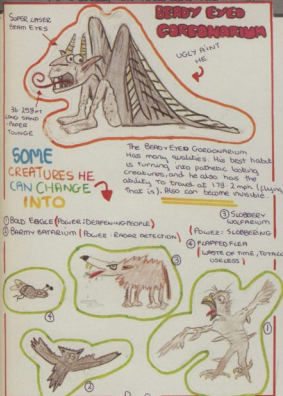 BEADY EYED
GORGONARIUM
SUPER LASER
BEAM EYES
UGLY AIN'T
HE
LONG SAND
-PAPER
TOUNGE
SOME
CREATURES HE
CAN CHANGE
INTO
The BEADY EYED GORGONARIUM
Has many qualities. His best habit
is turning into pathetic looking
creatures, and he also has the
ability to travel at 178.2 mph (flying
that is). Also can become invisible.
① BALD EAGLE (POWER: DEAFENING PEOPLE)
② BARMY BATARIUM (POWER: RADAR DETECTION)
③ SLOBBERY
WOLFARIUM
(POWER: SLOBBERING)
④ FLAPPED FLEA
(WASTE OF TIME, TOTALLY
USELESS)
④
③
①
②